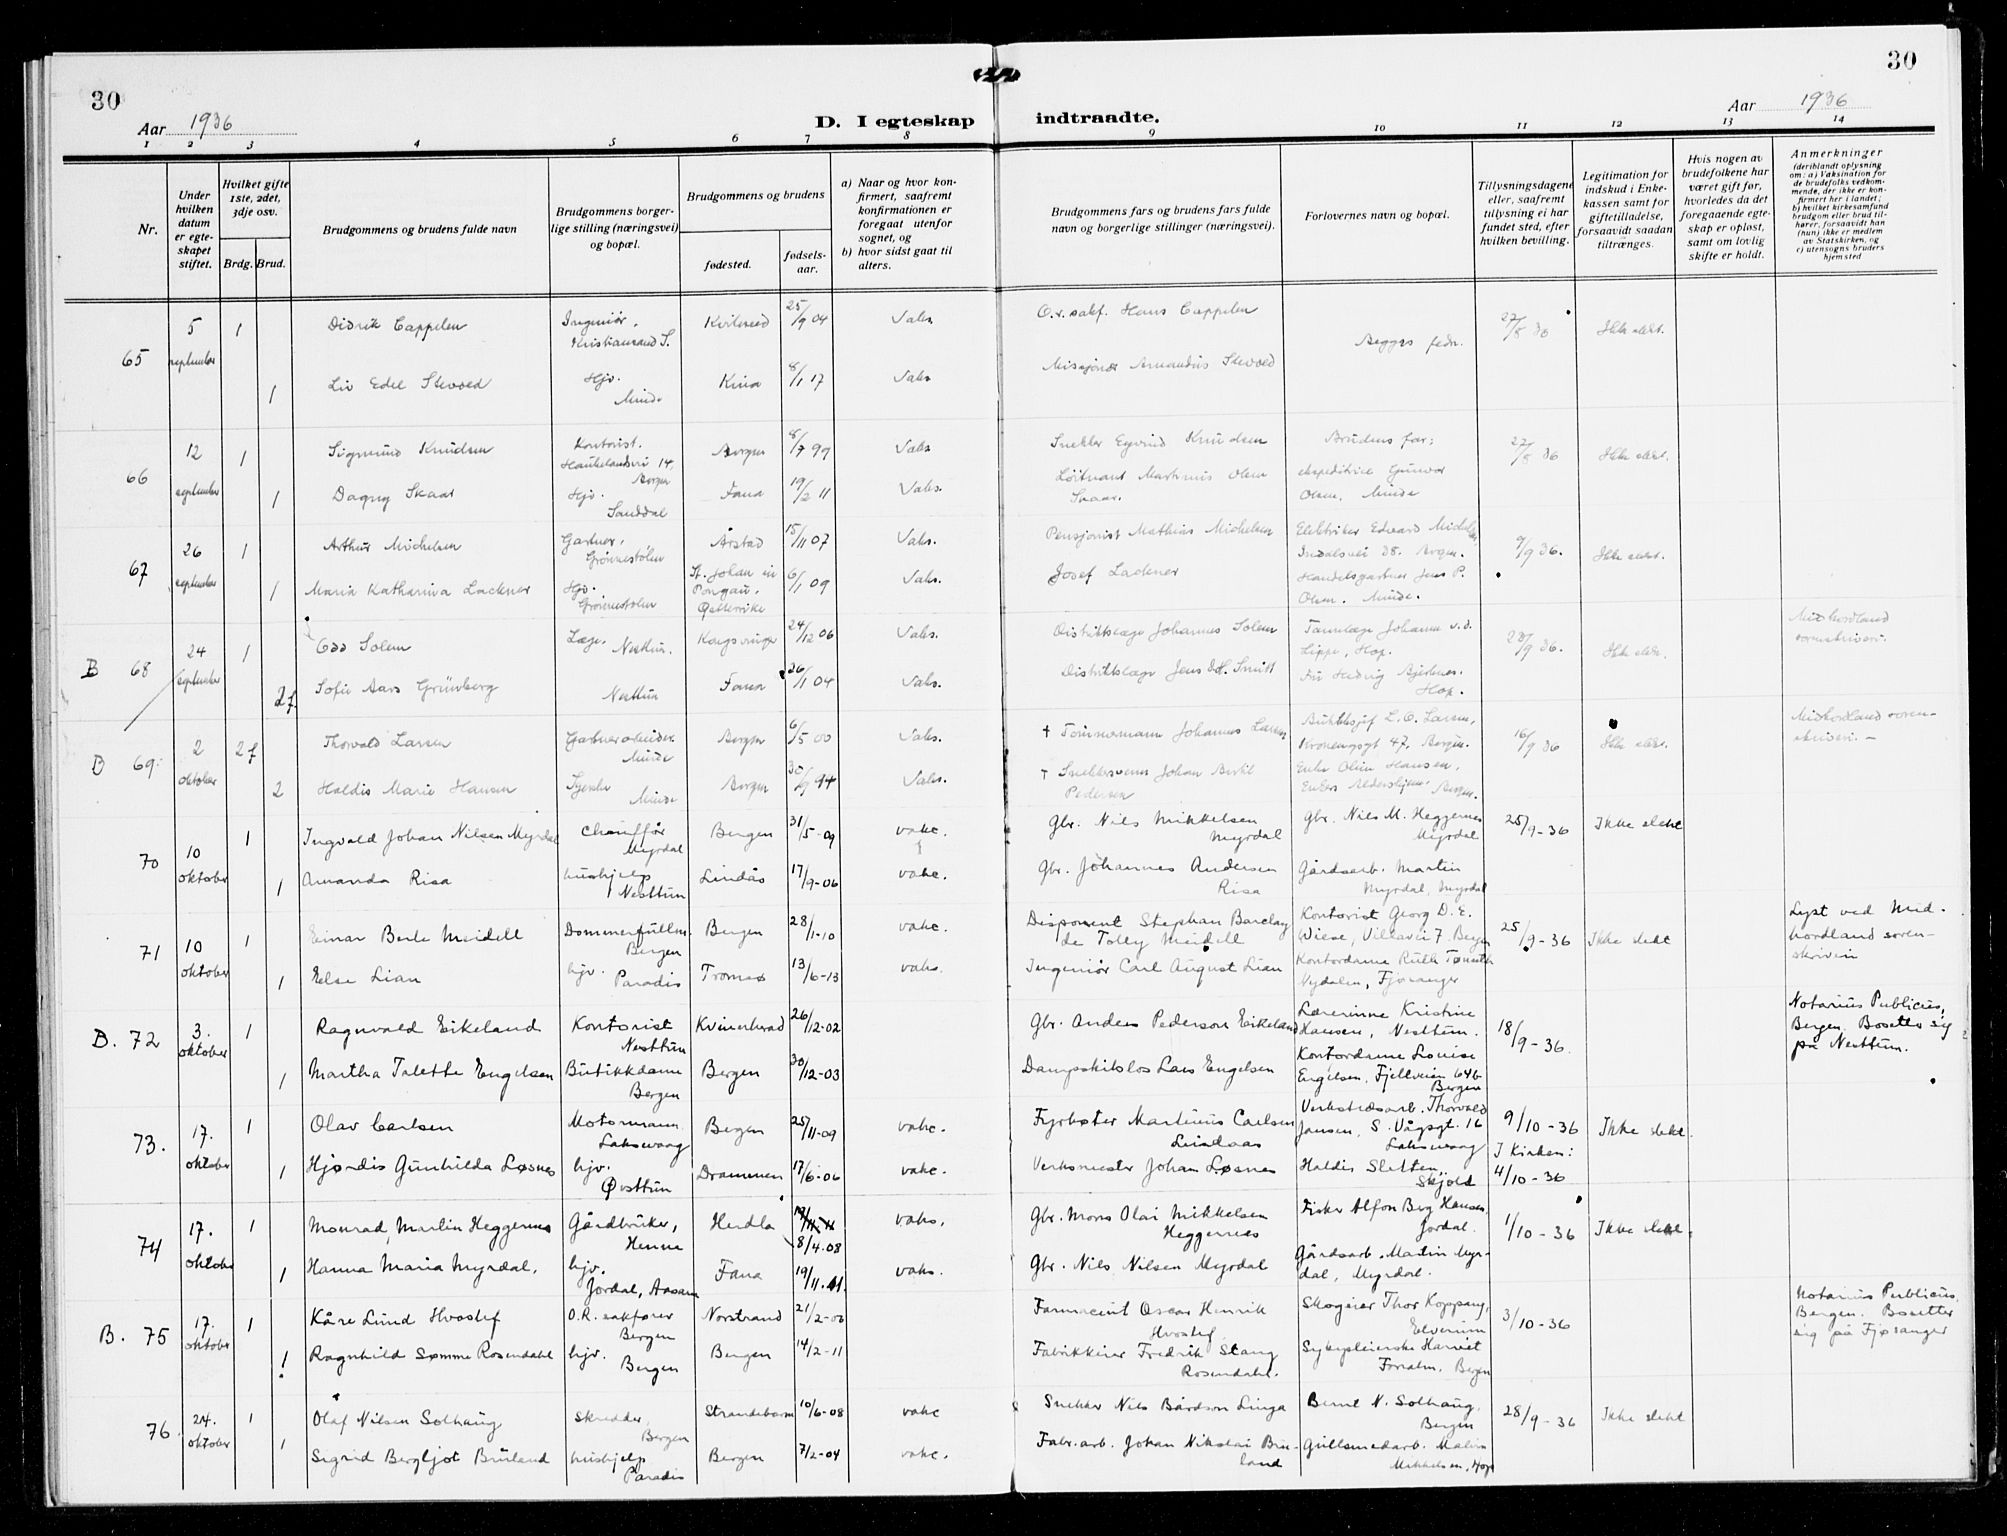 30
30
Aar 1936
D. I egteskap indtraadte.
Aar 1936
1 2 3 4 5 6 7 8 9 10 11 12 13 14
Nr.
Under hvilken datum er egteskapet stiftet.
Hvilket gifte 1ste, 2det, 3dje osv.
Brdg. Brud.
Brudgommens og brudens fulde navn
Brudgommens borgerlige stilling (næringsvei) og bopæl.
Brudgommens og brudens
fødested.
fødselsaar.
a) Naar og hvor konfirmert, saafremt konfirmationen er foregaat utenfor sognet, og
b) hvor sidst gaat til alters.
Brudgommens fars og brudens fars fulde navn og borgerlige stillinger (næringsvei).
Forlovernes navn og bopæl.
Tillysningsdagene eller, saafremt tillysning ei har fundet sted, efter hvilken bevilling.
Legitimation for indskud i Enkekassen samt for giftetilladelse, forsaavidt saadan tiltrænges.
Hvis nogen av brudefolkene har været gift før, hvorledes da det foregaaende egteskap er opløst, samt om lovlig skifte er holdt.
Anmerkninger
(deriblandt oplysning om: a) Vaksination for de brudefolks vedkommende, der ikke er konfirmert her i landet; b) hvilket kirkesamfund brudgom eller brud tilhører, forsaavidt han (hun) ikke er medlem av Statskirken, og c) utensogns bruders hjemsted
65 5 september 1 Didrik Cappelen Ingeniør, Kristiansand S. Kviteseid 25/9 04 Vaks. O.r.sakf. Hans Cappelen Begges fedr. 27/8 36 Ikke slekt.
1 Liv Edel Stevold Hjv. Minde Kina 8/1 17 Vaks Misjonær Amandus Stevold
66 12 september 1 Sigmund Knudsen Kontorist. Haukelandsvei 14, Bergen Bergen 8/7 99 Vaks Snekker Eyvind Knudsen Brudens far; 27/8 36 Ikke slekt.
1 Dagny Skaar Hjv. Sanddal Fana 19/2 11 Vaks. Løitnant Martinus Olsen Skaar. ekspeditrice Gunvor Olsen, Minde
67 26 september 1 Arthur Michelsen Gartner, Grønnestølen Årstad 15/11 07 Vaks. Pensjonist Mathias Michelsen Elektriker Edvard Michelsen, Indalsvei 38. Bergen. 9/9 36. Ikke slekt.
1 Maria Katharina Lackner Hjv. Grønnestølen St. Johan in Pongau, Østerrike 6/1 09 Vaks. Josef Lackner Handelsgartner Jens P. Olsen. Minde.
B 68 24 september 1 Odd Solem Læge, Nesttun. Kongsvinger 24/12 06 Vaks. Distriktslæge Johannes Solem Tannlæge Johann v.d. Lippe, Hop. 23/9 36. Ikke slekt. Midhordland sorenskriveri.
2 f. Sofie Aars Grünberg Nesttun Fana 26/1 04 Vaks. Distriktslæge Jens Smitt Fru Hedvig Bjerknes. Hop.
B 69 2 oktober 2 f Thorvald Larsen Gartnerarbeider Minde Bergen 6/5 00 Vaks. † Tømmermann Johannes Larsen L. O. Larsen, Kroneng gt 47, Bergen. 16/9 36 Ikke slekt. Midhordland sorenskriveri. —
2 Haldis Marie Hansen Syerske Minde Bergen 30/9 94 Vaks. † Snekkersvenn Johan Bertil Pedersen Enke Oline Hansen, Enkers Aldershjem, Bergen.
70 10 oktober 1 Ingvald Johan Nilsen Myrdal Chauffør Myrdal Bergen 31/5-09 vakc. Gbr. Nils Mikkelsen Myrdal Gbr. Nils M. Heggernes Myrdal 25/9-36 Ikke slekt
1 Amanda Risa hushjelp Nesttun Lindås 17/9-06 vakc. Gbr. Johannes Andersen Risa Gårdsarb. Martin Myrdal, Myrdal
71 10 oktober 1 Einar Berle Meidell Dommerfullm. Bergen Bergen 28/1-10 vakc. Disponent Stephan Barclay de Tolly Meidell Kontorist Georg D. E. Wiese, Villavei 7 Bergen 25/9-36 Ikke slekt Lyst ved Midhordland sorenskriveri
1 Else Lian hjv. Paradis Tromsø 13/6-13 vaks. Ingeniør Carl August Lian Kontordame Ruth Tønseth Nydalen, Fjøsanger
B. 72 3. oktober 1 Ragnvald Eikeland Kontorist Nesttun Kvinnherad 26/12-02 Gbr. Anders Pederson Eikeland Lærerinne Kristine Hansen, Nesttun. 18/9-36. Notarius Publicus, Bergen. Bosetter sig på Nesttun.
1 Martha Talette Engelsen Butikkdame Bergen Bergen 30/12-03 Dampskibslos Lars Engelsen Kontordame Louise Engelsen, Fjellveien 64b Bergen
73. 17. oktober 1 Olav Carlsen Motormann Laksevaag Bergen 25/11-09 vakc. Fyrbøter Martinius Carlsen Lindaas Verkstedsarb. Thorvald Jansen, S. Vågsgt. 16 Laksevaag 9/10-36 Ikke slekt.
1 Hjørdis Gunhilda Løsnes hjv. Øvsttun Drammen 17/6-06 vakc. Verksmester Johan Løsnes Haldis Sletten, Skjold I Kirken: 4/10-36
74 17. oktober 1 Monrad Martin Heggernes Gårdbruker, Henne Herdla 8/4.08 vaks. Gbr. Mons Olai Mikkelsen Heggernes Fisker Alfon Berg Hansen, Jordal. 1/10-36 Ikke slekt.
1 Hanna Maria Myrdal, hjv. Jordal, Aasane Fana 19/11.11 vaks. Gbr. Nils Nilsen Myrdal Gårdsarb. Martin Myrdal, Myrdal.
B. 75 17. oktober 1 Kåre Lund Hvoslef O.R. sakfører Bergen Norstrand 21/2-00 Farmaceut Oscar Henrik Hvoslef Skogeier Thor Koppang, Elverum 3/10-36 Notarius Publicus, Bergen. Bosetter sig på Fjøsanger
1 Ragnhild Sømme Rosendahl hjv. Bergen Bergen 14/2-11 Fabrikkeier Fredrik Stang Rosendahl. Sykepleierske Harriet Bergen
76 24. oktober 1 Olaf Nilsen Solhaug skredder, Bergen Strandebarm 10/6-08 vakc Snekker Nils Bårdson Linga Bernt N. Solhaug, Bergen 28/9-36 Ikke slekt
1 Sigrid Bergljot Bruland hushjelp Paradis Bergen 7/2-04 vakc. Fabr.arb. Johan Nikolai Bruland Gullsmedarb. Malvin Mikkelsen, Hop